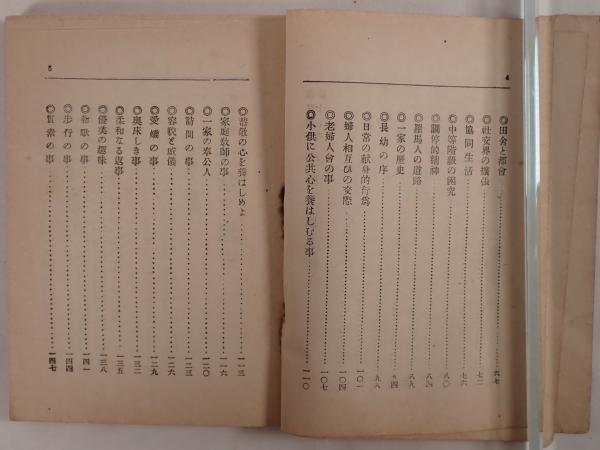 4
◎田舍と都會…………六七
◎社交界の擴張…………七二
◎協同生活…………七六
◎中等階級の困究…………八〇
◎調停的精神…………八四
◎羅馬人の道路…………八九
◎一家の歴史…………九四
◎長幼の序…………九八
◎日常の献身的行爲…………一〇一
◎婦人相互ひの交際…………一〇四
◎老婦人會の事…………一〇七
◎小供に公共心を養はしむる事…………一一〇
5
◎恭敬の心を養はしめよ…………一一三
◎家庭敎師の事…………一一六
◎一家の奉公人…………一二〇
◎訪問の事…………一二三
◎容貌と威儀…………一二六
◎愛嬌の事…………一二九
◎奥床しき事…………一三二
◎柔和なる返事…………一三五
◎優美の趣味…………一三八
◎唱歌の事…………一四一
◎歩行の事…………一四四
◎質素の事…………一四七